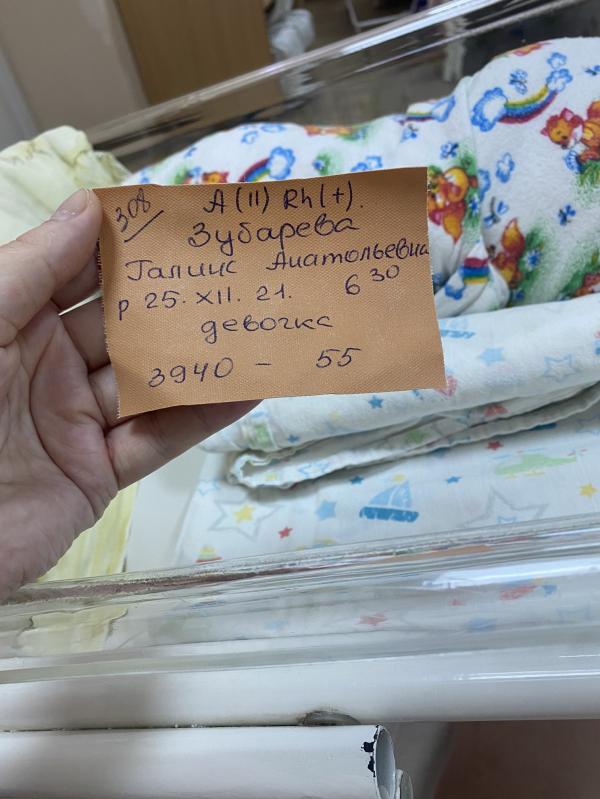 308
A (II) Rh (+).
Зубарева
Галина Анатольевна
р 25. XII. 21. 6 30
девочка
3940 - 55